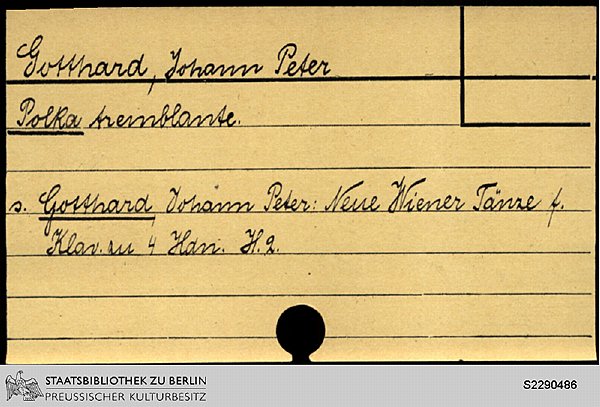 Gotthard, Johann Peter
Polka tremblante.
s. Gotthard, Johann Peter: Neue Wiener Tänze f.
Klav. zu 4 Hdn. H. 2.
STAATSBIBLIOTHEK ZU BERLIN
PREUSSISCHER KULTURBESITZ
S2290486